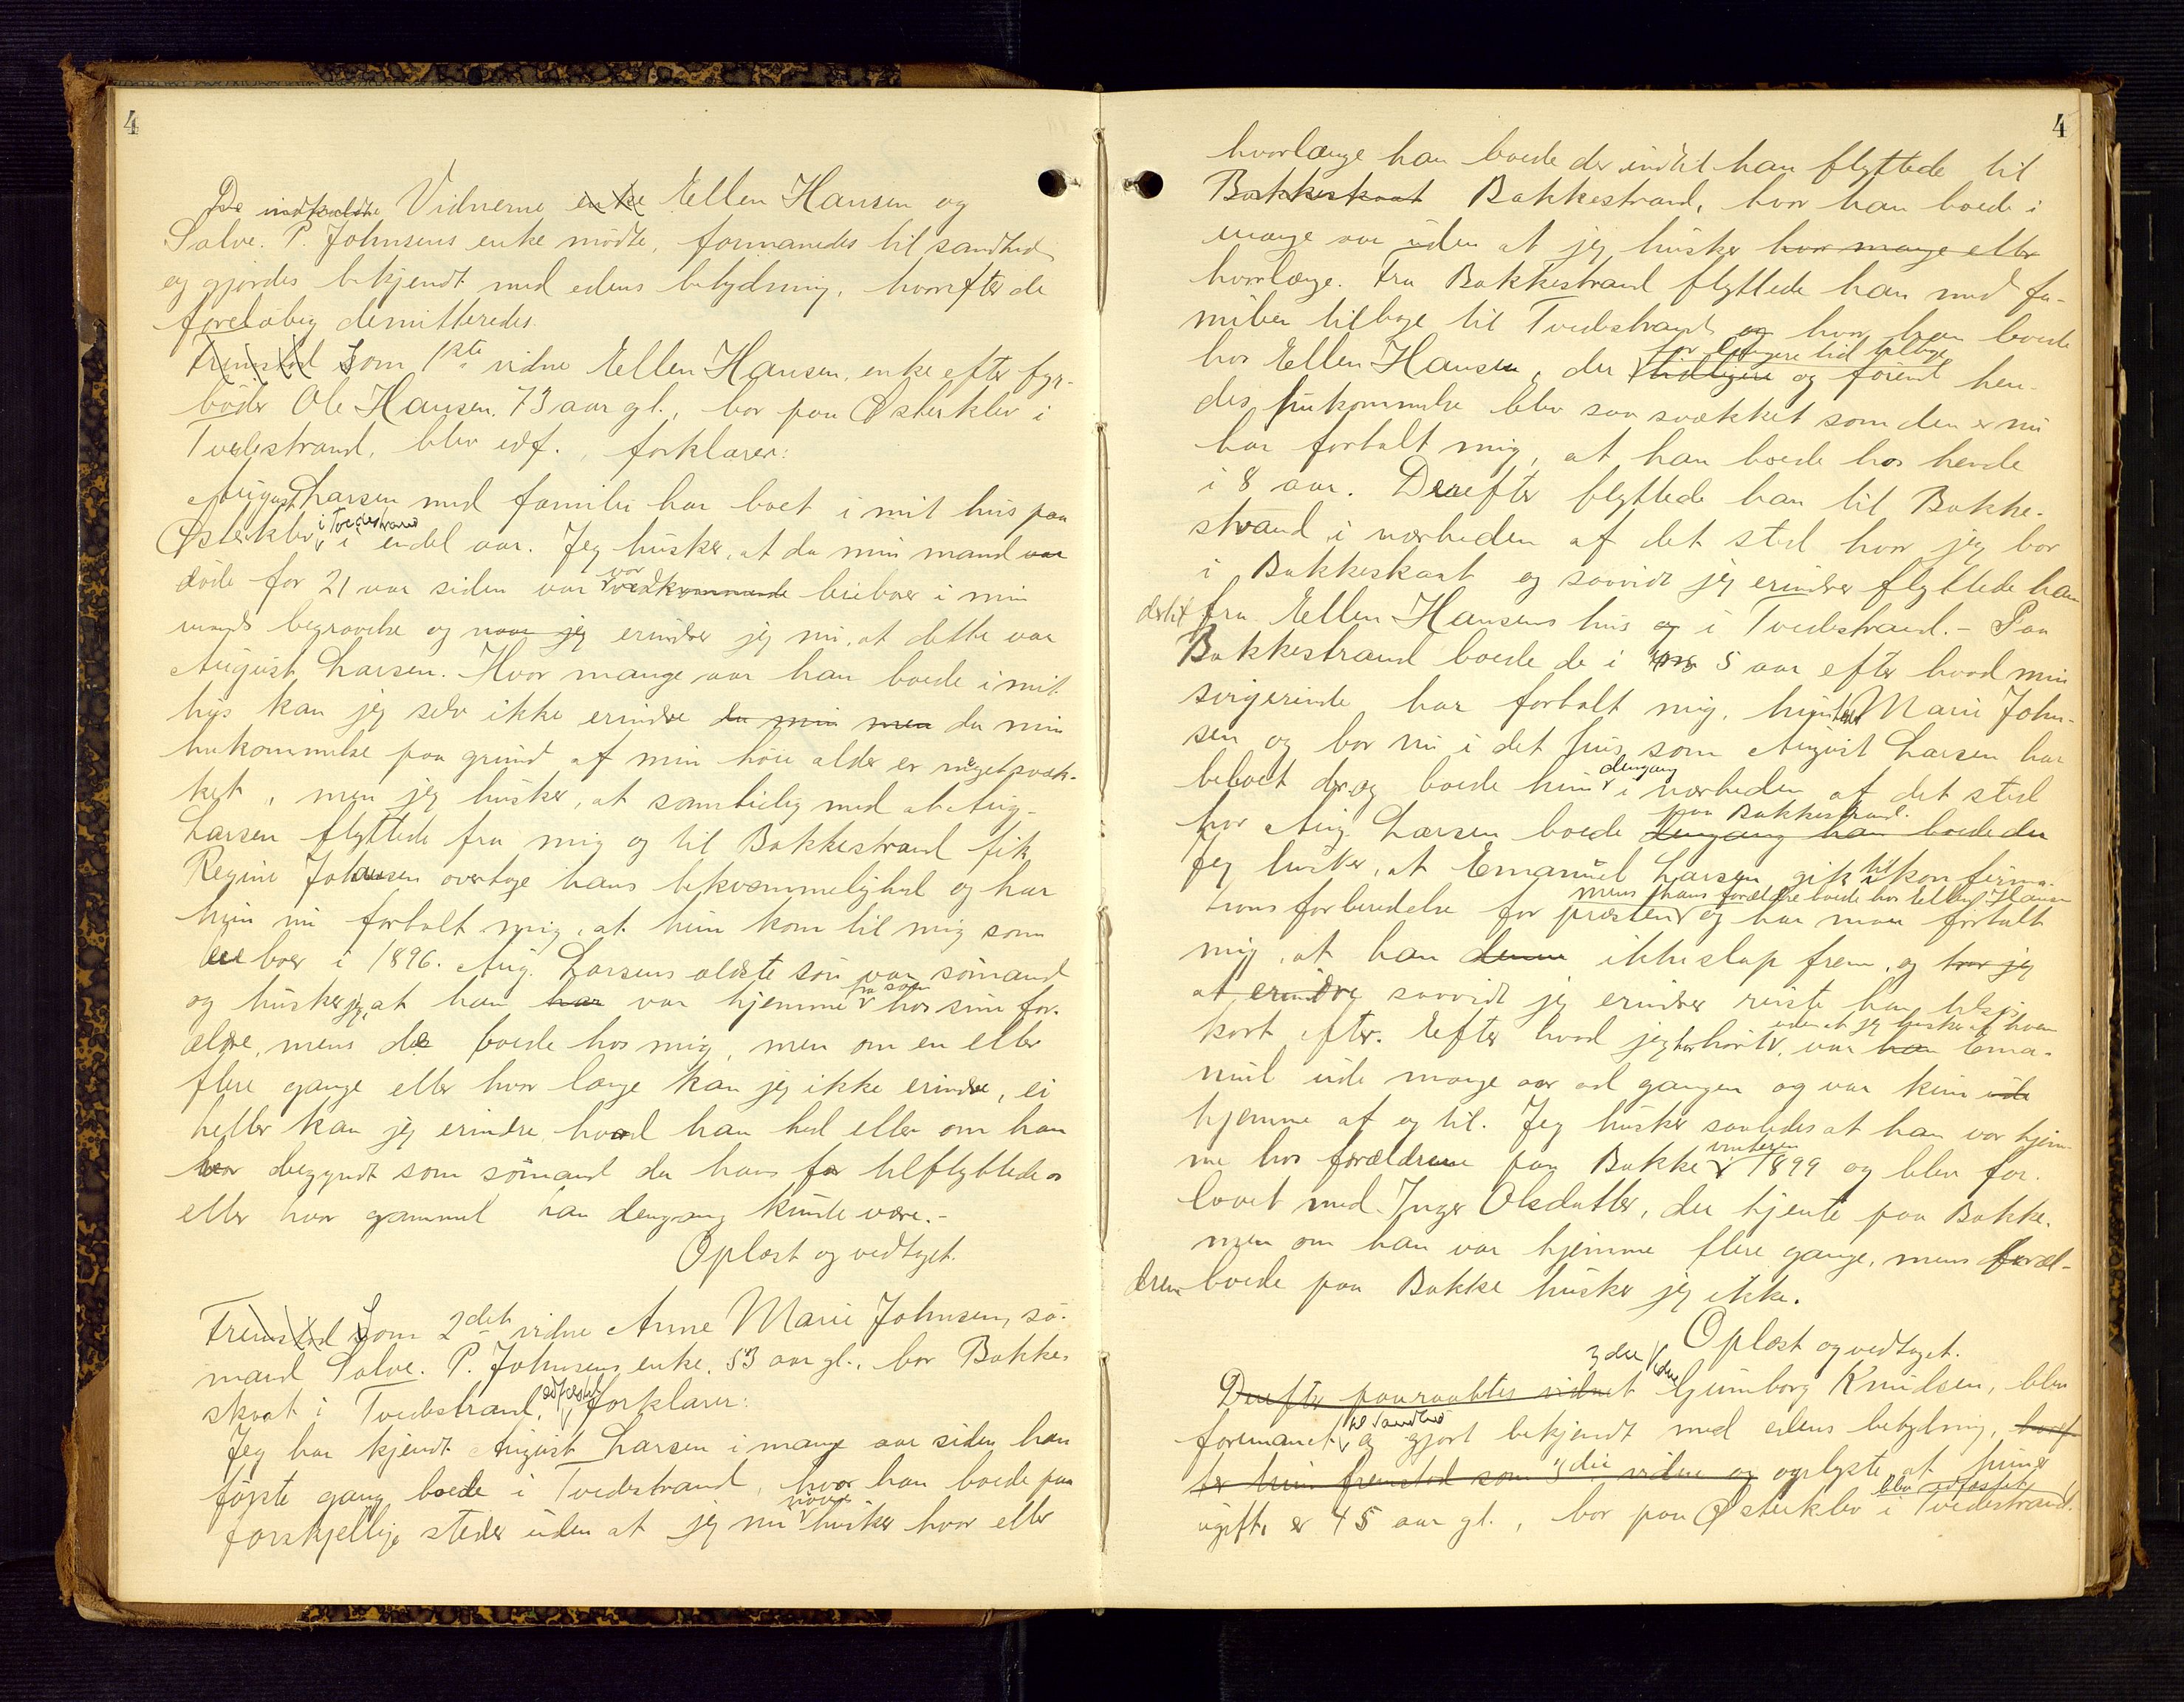 4
De indkaldte Vidnerne enke Ellen Hansen og
Salve. P. Johnsens enke mödte, formanedes til sandhed
og gjordes bekjendt med edens betydning, hvorefter de
foreløbig demitteredes.
Fremstod Som 1ste vidne Ellen Hansen, enke efter fyr-
böder Ole Hansen. 73 aar gl., bor paa Østerklev i
Tvedestrand, blev edf., forklarer:
August Larsen med familie har boet i mit hus paa
Østerklev i Tvedestrand i endel aar. Jeg husker, at da min mand var
döde for 21 aar siden var vor vedkommende leieboer i min
mands begravelse og naar jeg erindrer jeg nu, at dette var
August Larsen. Hvor mange aar han boede i mit
hus kan jeg selv ikke erindre da min men da min
hukommelse paa grund af min höie alder er meget svæk-
ket, men jeg husker, at samtidig med at Aug.
Larsen flyttede fra mig og til Bakkestrand fik
Regine Johnsen overtage hans bekvemmelighed og har
hun nu fortalt mig, at hun kom til mig som
leieboer i 1896. Aug. Larsens ældste sön var sömand
og husker jeg, at han har var hjemme fra söen hos sine for-
ældre, mens de boede hos mig, men om en eller
flere gange eller hvor længe kan jeg ikke erindre, ei
heller kan jeg erindre, hvad han hed eller om han
var begyndt som sömand da hans far tilflyttede os
eller hvor gammel han dengang kunde være.-
Oplæst og vedtaget.
Fremstod Som 2det vidne Anne Marie Johnsen, sö-
mand Salve. P. Johnsens enke, 53 aar gl., bor Bakke-
skaat i Tvedestrand, edfæstet forklarer:
Jeg har kjendt August Larsen i mange aar siden han
første gang boede i Tvedestrand, hvor han boede paa
forskjellige steder uden at jeg nu nöie husker hvor eller
4
hvorlænge han boede der indtil han flyttede til
Bakkeskaat Bakkestrand, hvor han boede i
mange aar uden at jeg husker hvor mange eller
hvorlænge. Fra Bakkestrand flyttede han med fa-
milien tilbage til Tvedestrand og hvor han boede
hos Ellen Hansen, der for længere tid tilbage tidligere og førend hen-
des hukommelse blev saa svækket som den er nu
har fortalt mig, at han boede hos hende
i 8 aar. Derefter flyttede han til Bakke-
strand i nærheden af det sted hvor jeg bor
i Bakkeskaat og saavidt jeg erindrer flyttede han
dertil fra Ellen Hansens hus og i Tvedestrand.- Paa
Bakkestrand boede de i 5 aar efter hvad min
svigerinde har fortalt mig, hun hed Marie John-
sen og bor nu i det hus som August Larsen har
beboet der og boede hun dengang i nærheden af det sted
hvor Aug. Larsen boede paa Bakkestrand. dengang han boede der
Jeg husker, at Emanuel Larsen gik til konfirma-
tionsforberedelse for præsten mens hans forældre boede hos Ellen Hansen og har man fortalt
mig, at han denne ikke slap frem, og tror jeg
at erindre saavidt jeg erindrer reiste han tilsjös
kort efter. Efter hvad jeg har hört uden at jeg husker af hvem, var han Ema-
nuel ude mange aar ad gangen og var kun ude
hjemme af og til. Jeg husker saaledes at han var hjem-
me hos forældrene paa Bakke vinteren i 1899 og blev for-
lovet med Inger Olsdatter, der tjente paa Bakke,
men om han var hjemme flere gange, mens foræl-
drene boede paa Bakke husker jeg ikke.
Oplæst og vedtaget.
Derefter paaraabtes vidnet 3die Vidne Gunborg Knudsen, blev
formanet til Sandhed og gjort bekjendt med edens betydning, hvoref-
ter hun fremstod som 3die vidne og oplyste at hun er
ugift, er 45 aar gl., bor paa Østerklev i Tvedestrand. blev edfæstet,